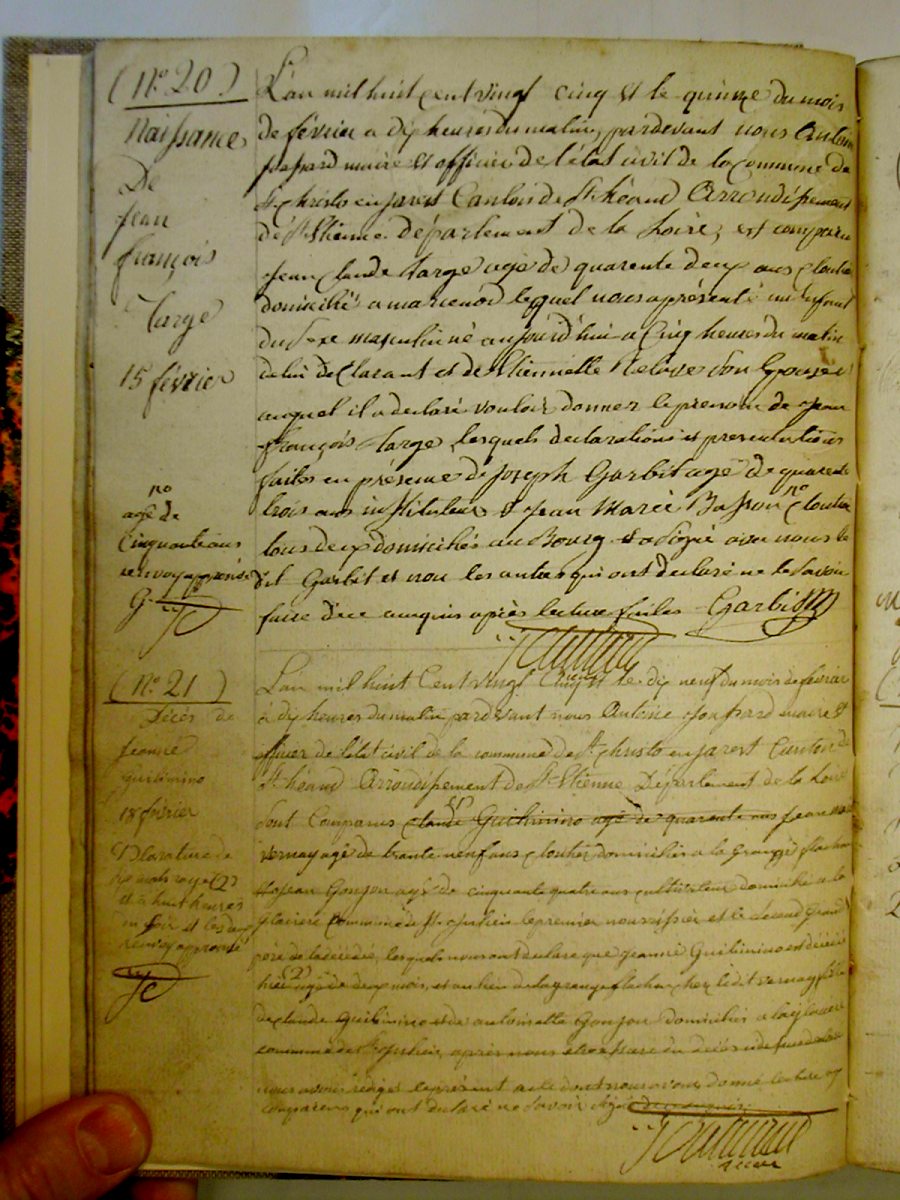 (N.º 20)
Naissance
De
jean
françois
Targe
15 février
no
agé de
Cinquante ans
renvoy approuvé
L'an mil huit cent vingt cinq et le quinze du mois
de février a dix heures du matin, pardevant nous Antoine
maire et officier de l'état civil de la commune de
St. Christo en jarest Canton de St. héand Arrondissement
de St. Etienne département de la Loire, est comparu
jean Claude Targe agé de quarente deux ans cloutier
domicilié a lequel nous a présenté un enfant
du sexe masculin né aujourd'hui a Cinq heures du matin
de lui déclarant et de Etiennette son Epouse
auquel il a déclaré vouloir donner le prenom de jean
françois Targe, lesquels declarations et presentations
faites en présence de joseph Garbit agé de quarente
trois ans instituteur et jean Marie Basson no cloutier
tous deux domiciliés au Bourg et a signé avec nous le
dit Garbit et non les autres qui ont declaré ne le savoir
faire de ce enquis après lecture faite Garbit
(N.º 21)
Décès de
jeanne
guilimino
18 février
de
dix mots rayé (2)
et a huit heures
du soir et les deux
renvoy approuvé
L'an mil huit Cent vingt Cinq et le dix neuf du mois de février
à dix heures du matin pardevant nous Antoine maire et
officier de l'etat civil de la commune de St. Christo en jarest Canton de
St. héand Arrondissement de St. Etienne Département de la Loire
Sont Comparus Claude Guilimino agé de quarente ans jean
vernay agé de trante neuf ans cloutier domicilié a la Grange flachat
et jean Gonjon agé de cinquante quatre ans cultivateur domicilié a la
commune de St. le premier nourrissier et le second Grand
père de la décédée, lesquels nous ont declaré que jeanne Guilimino est décédée
hier (2) agé de deux mois, et au lieu de la grange flachat chez le dit vernay fille
de claude Guilimino et de antoinette Gonjon domiciliés a
commune de St. après nous être assuré du décès
nous avons rédigé le présent acte dont nous avons donné lecture aux
comparens qui ont declaré ne savoir signer de ce enquis
maire